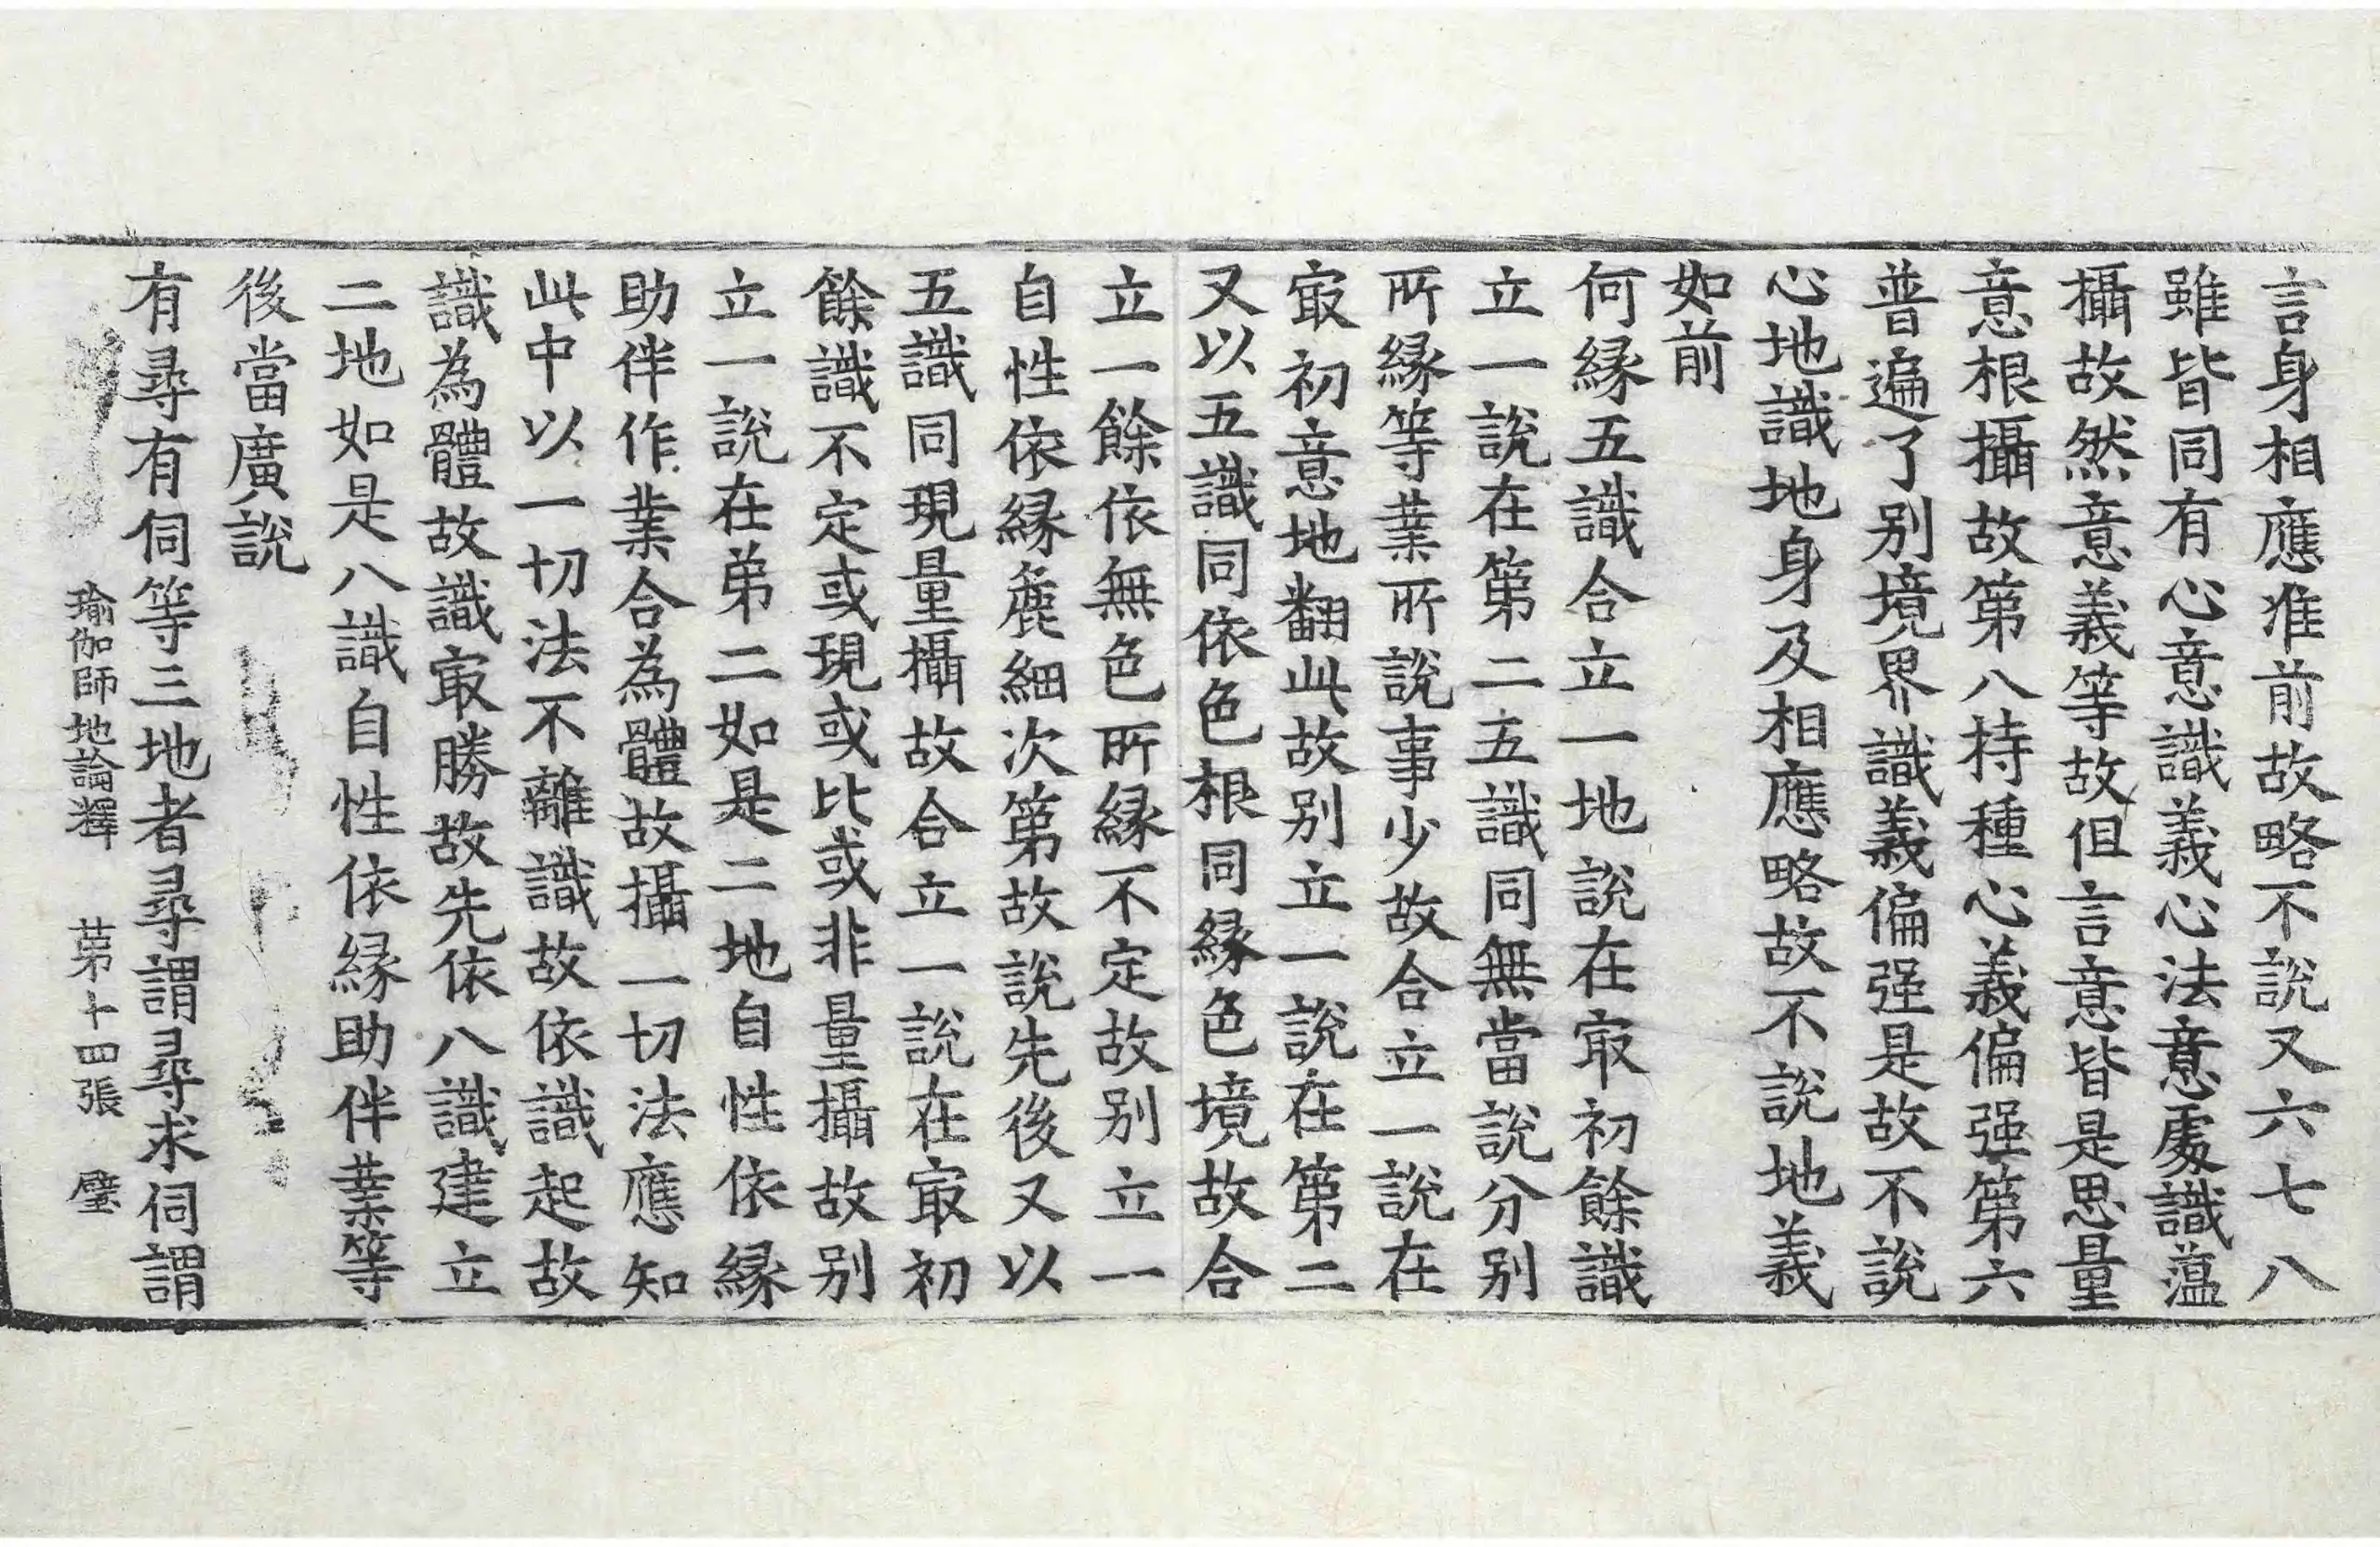 言身相應准前故略不說又六七八
雖皆同有心意識義心法意處識薀
攝故然意義等故但言意皆是思量
意根攝故第八持種心義偏强第六
普遍了别境界識義偏强是故不說
心地識地身及相應略故不說地義
如前
何縁五識合立一地說在㝡初餘識
立一說在第二五識同無當說分别
所縁等業所說事少故合立一說在
㝡初意地翻此故别立一說在第二
又以五識同依色根同縁色境故合
立一餘依無色所縁不定故别立一
自性依縁麁細次第故說先後又以
五識同現量攝故合立一說在㝡初
餘識不定或現或比或非量攝故别
立一說在弟二如是二地自性依縁
助伴作業合為體故攝一切法應知
此中以一切法不離識故依識起故
識為體故識㝡勝故先依八識建立
二地如是八識自性依縁助伴業等
後當廣說
有尋有伺等三地者尋謂尋求伺謂
瑜伽師地論釋 苐十四張 璧